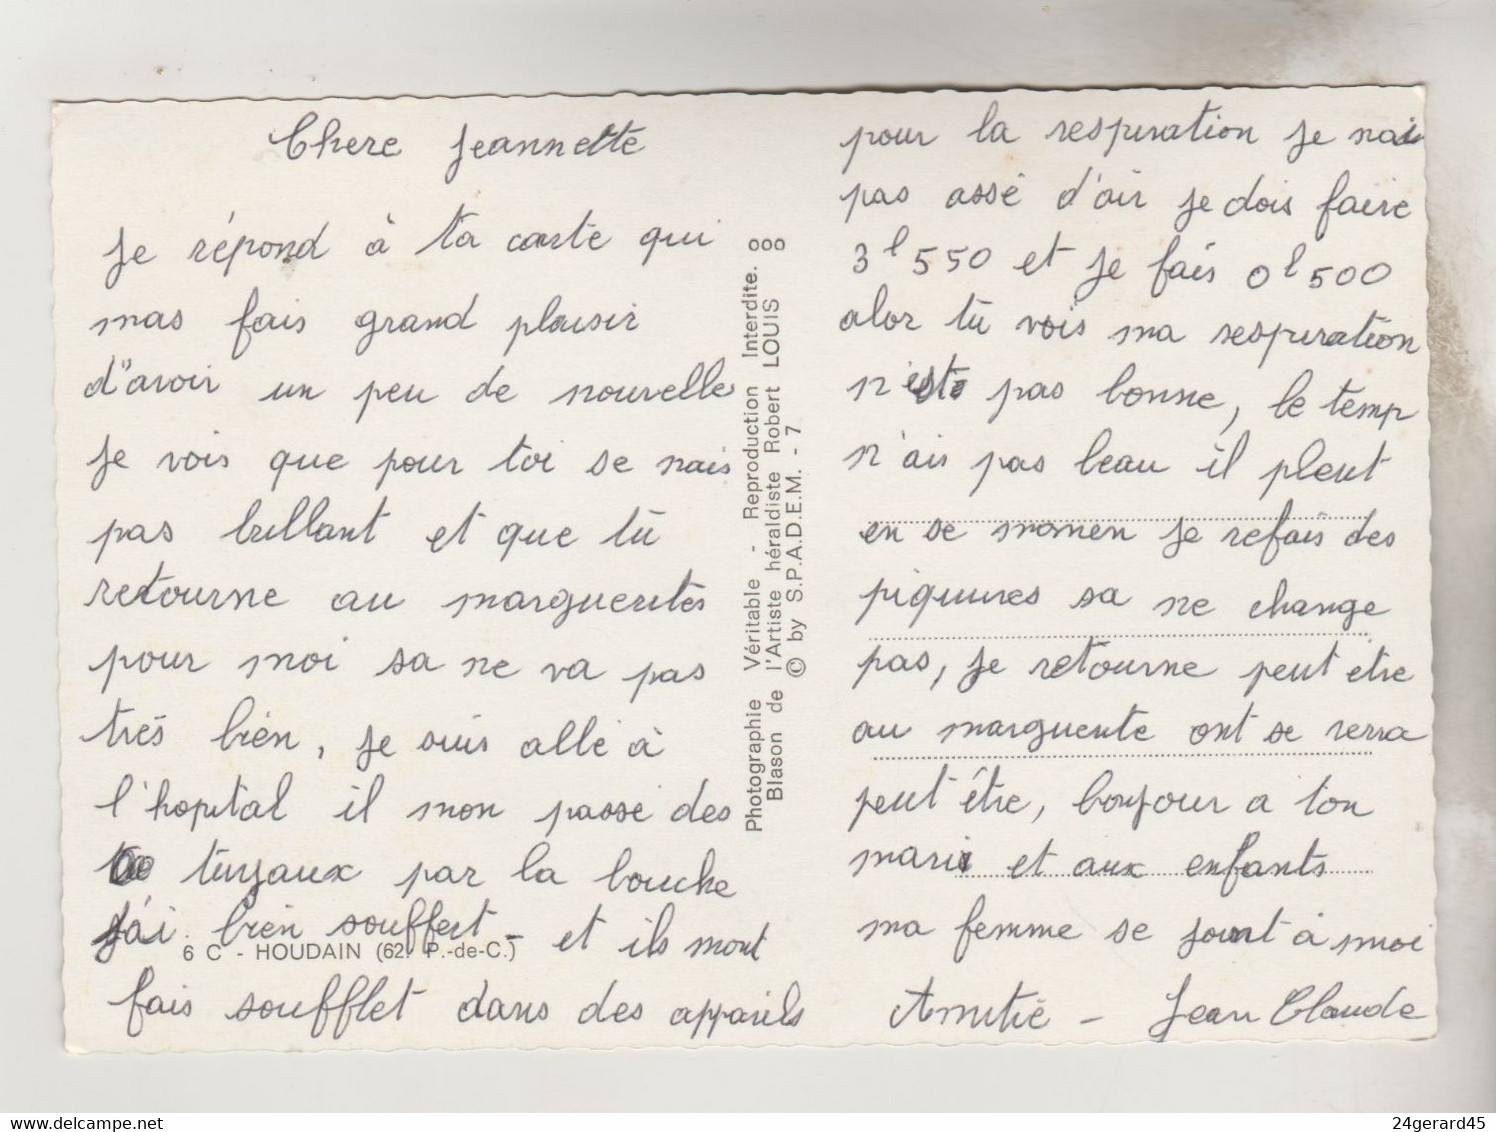 Chere Jeannette
Je répond à ta carte qui
mas fais grand plaisir
d'avoir un peu de nouvelle
Je vois que pour toi se nais
pas brillant et que tu
retourne au marguerites
pour moi sa ne va pas
trés bien, Je suis allé à
l'hopital il mon passé des
tuyaux par la bouche
J'ai bien souffert - et ils mont
fais soufflet dans des appareils
6 C - HOUDAIN (62. P.-de-C.)
Photographie Véritable - Reproduction Interdite.
Blason de l'Artiste héraldiste Robert LOUIS
© by S.P.A.D.E.M. - 7
pour la respiration Je nai
pas assé d'air Je dois faire
3 l 550 et Je fais 0 l 500
alor tu vois ma respiration
n'est pas bonne, le temp
n'ais pas beau il pleut
en se momen Je refais des
piquures sa ne change
pas, Je retourne peut etre
au marguerite ont se verra
peut être, bonjour a ton
mari et aux enfants
ma femme se joint à moi
Amitié - Jean Claude
24gerard45